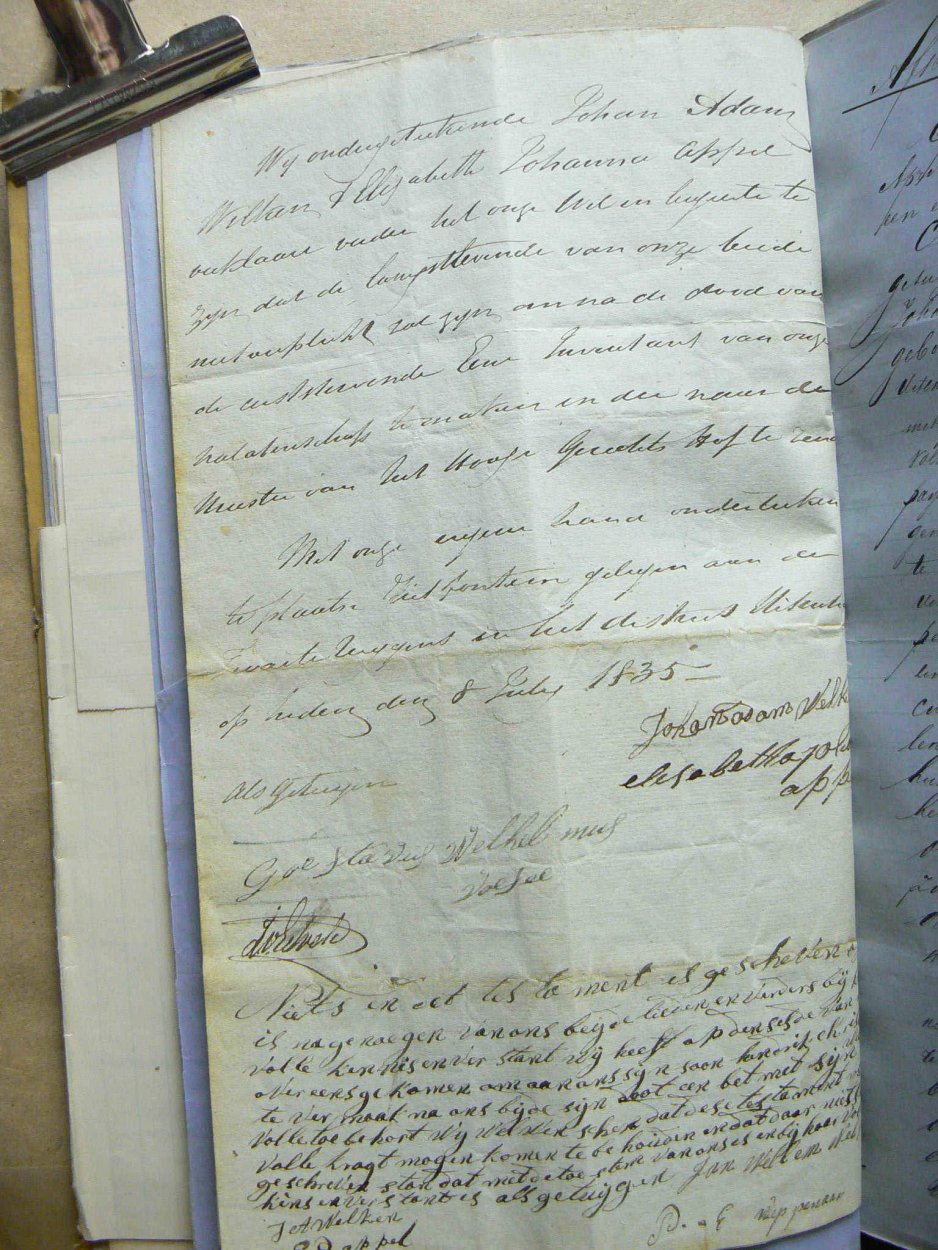 Wy ondergeteekende Johan Adam
Welkan & Elisabeth Johanna Appel
verklaare veeder het onze Wil en begeerte te
zyn dat de langstlevende van onze beide
niet verplicht zal zyn om na de dood van
de eerststervende Een Inventaris van onze
nalatenschap te maken en die naar den
Meester van het Hooge Gerechts Hof te zend
Met onze eigen hand onderteeken
te plaatse Rietfontein gelegen aan de
Zwarte Ruggens in het distrikt Uitenh
op heden den 8 July 1835 —
Johan adam Welk
elesabetha joha
app
Als Getuigen
Goe stavus Welhelmus
voesoe
Niets in det testament is geschreven
is na genoegen van ons beijde tleeden en verders bij
volle kennis en verstant wij heeft op denselde dan
over eens gekomen om aan ons syn soon hendrik
te vermaak na ons bijde syn doot een bet met sijn
volle toebehort Wij welven schen dat dese testament
volle kragt mogen komen te be houden en dat daar niets
geschreven stan dat met de toe stem van ons es en bij haar vol
kins en verstant is als getuijgen Jan Willem Wel
J A Welken
appel
P. E